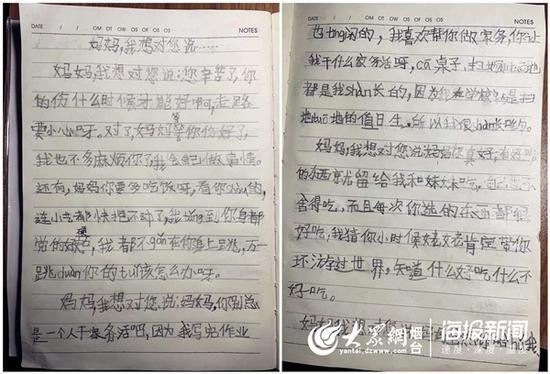 NOTES
妈妈,我想对您说……
妈妈,我想对您说:您辛苦了,你
的伤什么时候才能好啊,走路
要小心呀。对了妈妈等你伤好了,
我也不多麻烦你了我会自己做事情。
还有,妈妈你要多吃饭呀,看你shòu的,
连小都快抱不动了,我tīng到你身都
站的,我都不gǎn在你身上跳,万一
跳duàn你的tuǐ该怎么办呀。
妈妈,我想对您说:妈妈,你别总
是一个人干家务活吧,因为我写完作业
NOTES
也tǐng闲的,我喜欢帮你做家务,你让
我干什么家务活呀,cā桌子、扫地和拖地
都是我shàn长的,因为我在学校是扫
地和拖地的值日生,所以我很shàn长
妈妈,我想对您说:妈妈你真好,有好吃
的东西都留给我和妹妹吃,自己都不
舍得吃,而且每次你选的东西都很
好吃,我猜你小时候姥姥肯定带你
环游过世界,知道什么好吃什么不
好吃。
妈妈,我想对
大众网 烟台 海报新闻
yantai.dzwww.com 速度·深度·温度